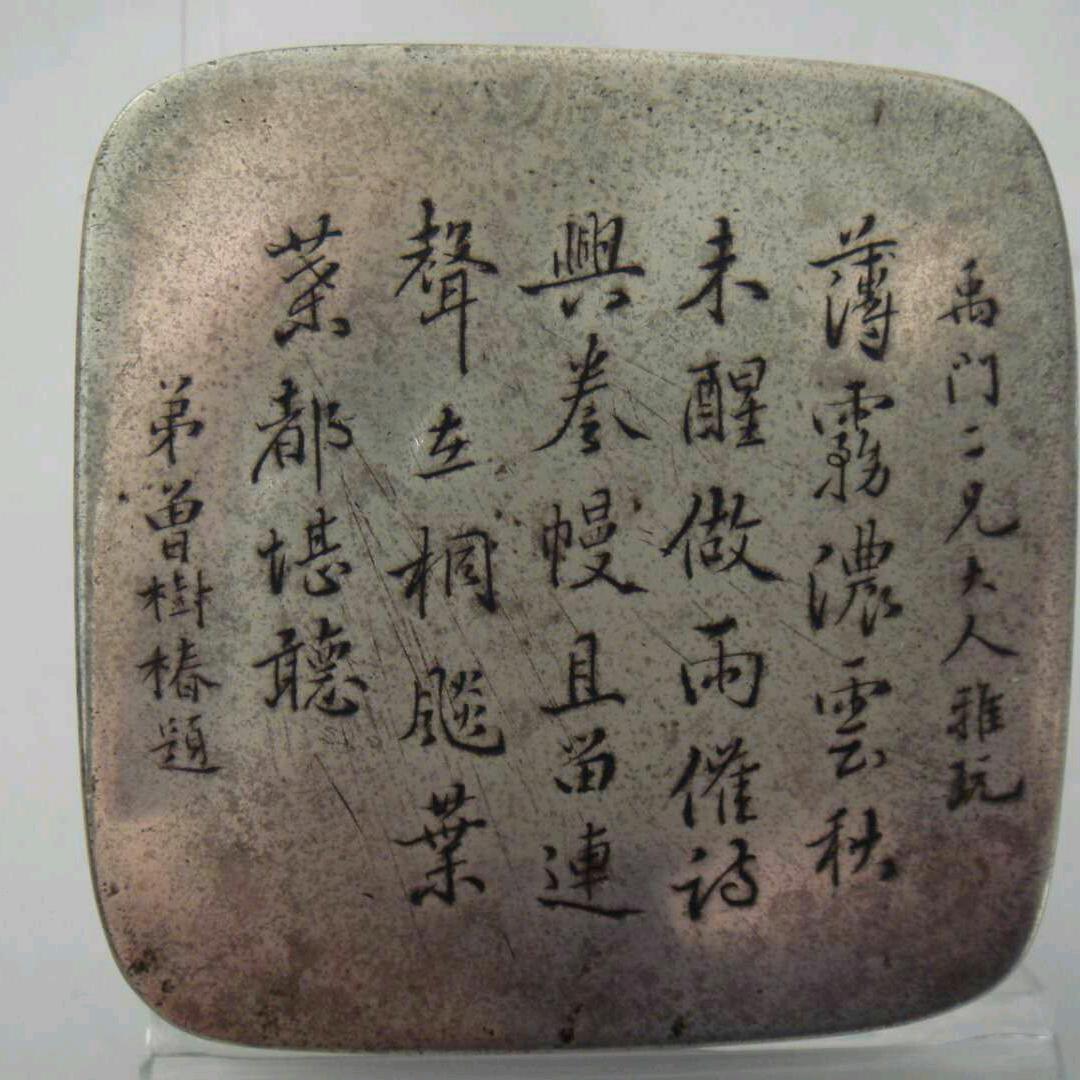 禹門二兄大人雅玩
薄霧濃雲秋
未醒做雨催詩
興捲幔且留連
聲在桐飚葉
葉都堪聽
弟曾樹椿題